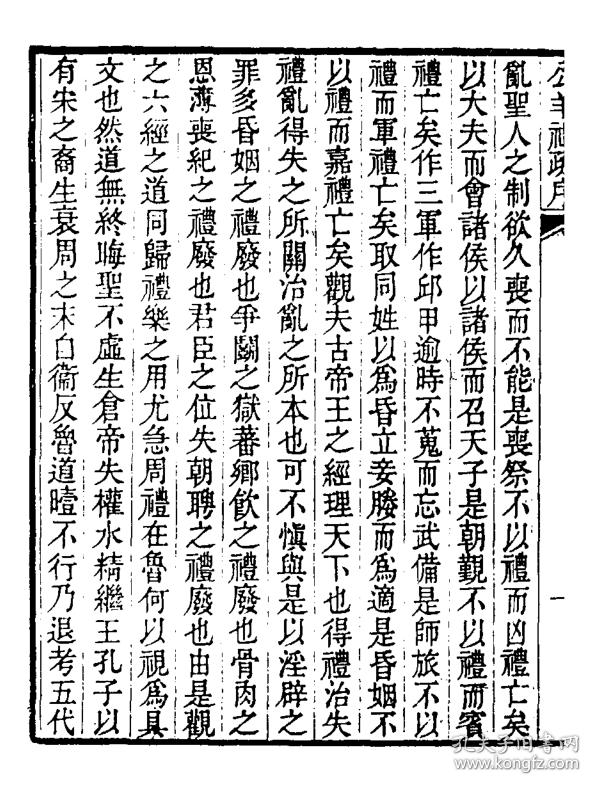 公羊禮疏序
一
亂聖人之制欲久喪而不能是喪祭不以禮而凶禮亡矣
以大夫而會諸侯以諸侯而召天子是朝覲不以禮而賓
禮亡矣作三軍作邱甲逾時不蒐而忘武備是師旅不以
禮而軍禮亡矣取同姓以為昏立妾媵而為適是昏姻不
以禮而嘉禮亡矣觀夫古帝王之經理天下也得禮治失
禮亂得失之所關治亂之所本也可不愼與是以淫辟之
罪多昏姻之禮廢也爭鬭之獄蕃鄉飮之禮廢也骨肉之
恩薄喪紀之禮廢也君臣之位失朝聘之禮廢也由是觀
之六經之道同歸禮樂之用尤急周禮在魯何以視為具
文也然道無終晦聖不虛生倉帝失權水精繼王孔子以
有宋之裔生衰周之末自衞反魯道曀不行乃退考五代
孔夫子旧书网
kongfz.com